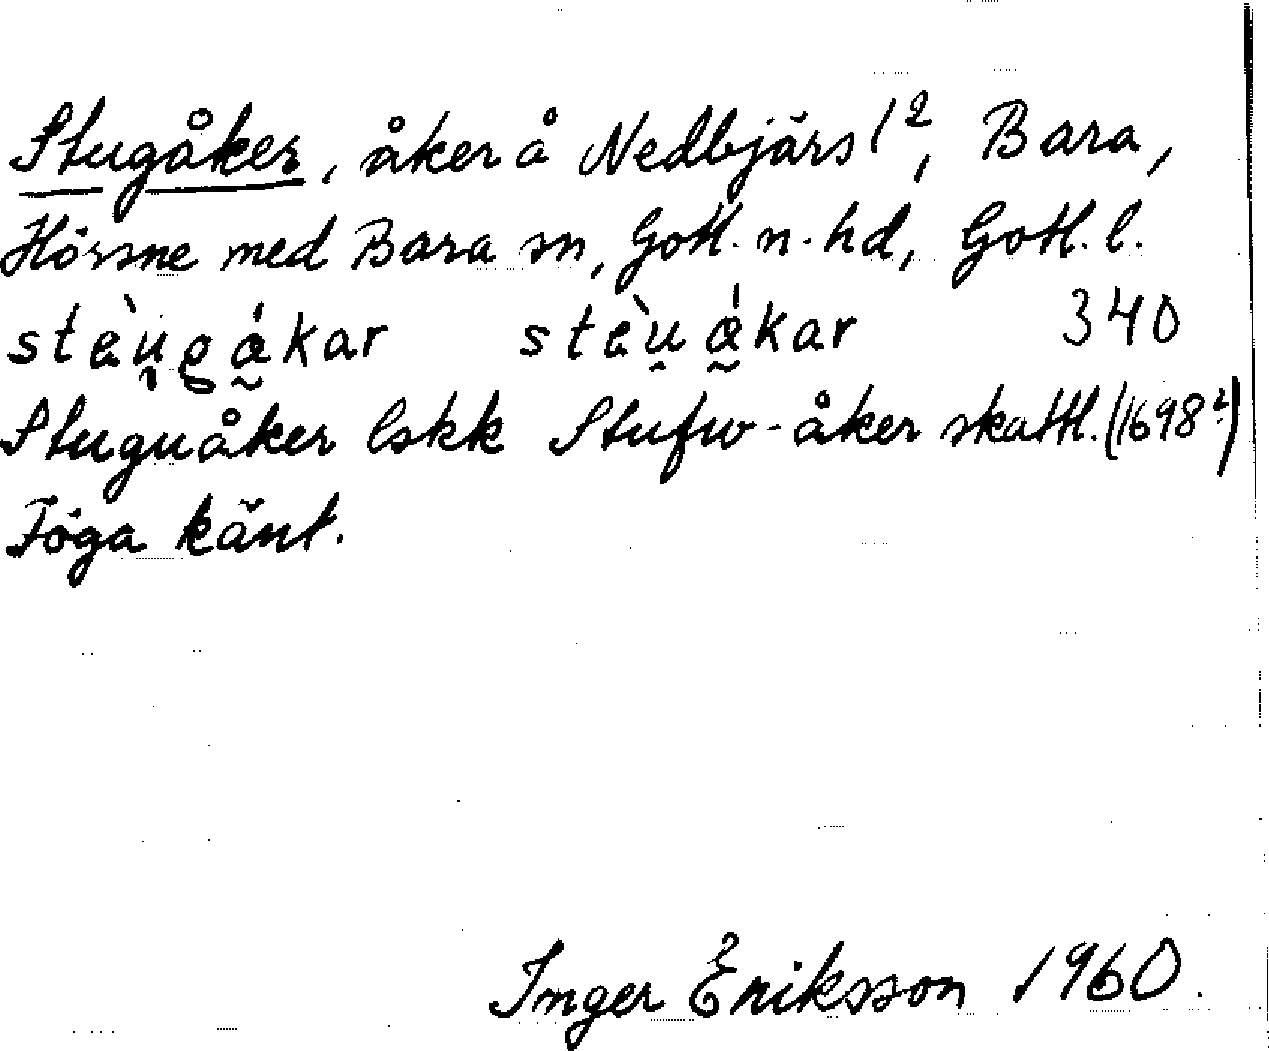 Stugåker, åker å Nedbjärs 1², Bara,
Hörsne med Bara sn, Gotl. n. hd, Gotl. l.
stèu̯gåkar stèu̯åkar 340
Stuguåker lskk Stufw-åker skattl. (1698²)
Föga känt.
Inger Eriksson 1960.